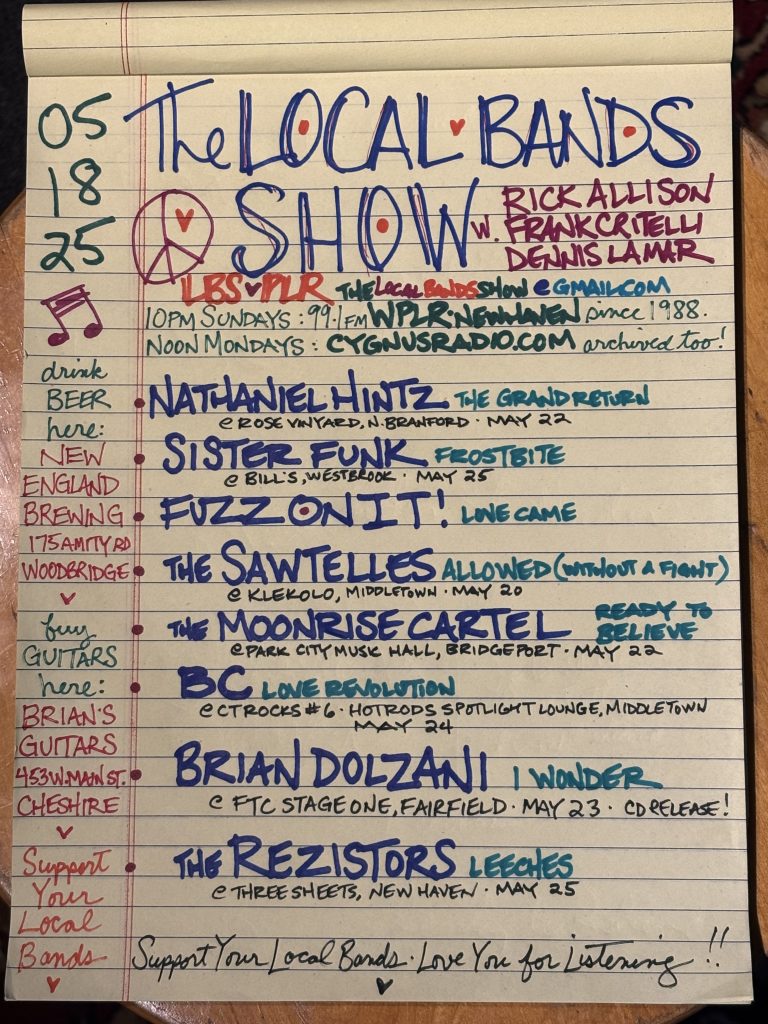 05
18
25
The LOCAL BANDS
SHOW w. RICK ALLISON
FRANK CRITELLI
DENNIS LAMAR
LBS PLR THELOCALBANDSSHOW@GMAIL.COM
10PM SUNDAYS: 99.1FM WPLR·NEWHAVEN since 1988.
NOON MONDAYS: CYGNUSRADIO.COM archived too!
drink
BEER
here:
NEW
ENGLAND
BREWING
175 AMITY RD
WOODBRIDGE
buy
GUITARS
here:
BRIAN'S
GUITARS
453 W. MAIN ST.
CHESHIRE
Support
Your
Local
Bands
• NATHANIEL HINTZ THE GRAND RETURN
@ ROSE VINYARD, N. BRANFORD · MAY 22
• SISTER FUNK FROSTBITE
@ BILL'S, WESTBROOK · MAY 25
• FUZZ ON IT! LOVE CAME
• THE SAWTELLES ALLOWED (WITHOUT A FIGHT)
@ KLEKOLO, MIDDLETOWN · MAY 20
• THE MOONRISE CARTEL READY TO
BELIEVE
@ PARK CITY MUSIC HALL, BRIDGEPORT · MAY 22
• BC LOVE REVOLUTION
@ CTROCKS #6 · HOTRODS SPOTLIGHT LOUNGE, MIDDLETOWN
MAY 24
• BRIAN DOLZANI I WONDER
@ FTC STAGE ONE, FAIRFIELD · MAY 23 · CD RELEASE!
• THE REZISTORS LEECHES
@ THREE SHEETS, NEW HAVEN · MAY 25
Support Your Local Bands · Love You for Listening!!